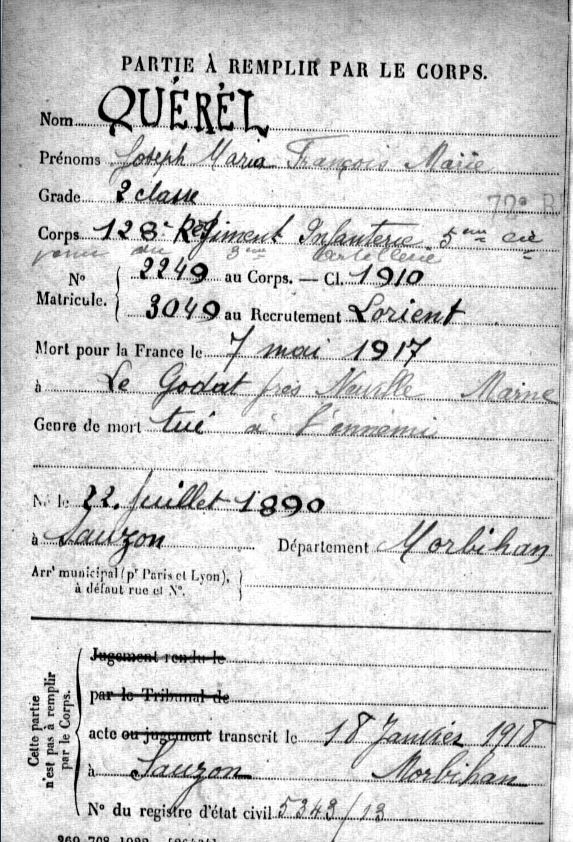 PARTIE À REMPLIR PAR LE CORPS.
Nom QUÉRÉL
Prénoms Joseph Maria François Marie
Grade 2 classe
72e
Corps 128e Régiment Infanterie 5eme cie
3eme artillerie
No Matricule. 2249 au Corps. — Cl. 1910
3049 au Recrutement Lorient
Mort pour la France le 7 mai 1917
à Le Godat près Neuville Marne
Genre de mort tué à l'ennemi
Né le 22 Juillet 1890
à Sauzon Département Morbihan
Arrt municipal (pr Paris et Lyon),
à défaut rue et No.
Cette partie
n'est pas à remplir
par le Corps.
Jugement rendu le
par le Tribunal de
acte ou jugement transcrit le 18 Janvier 1918
à Sauzon Morbihan
No du registre d'état civil 5343/13